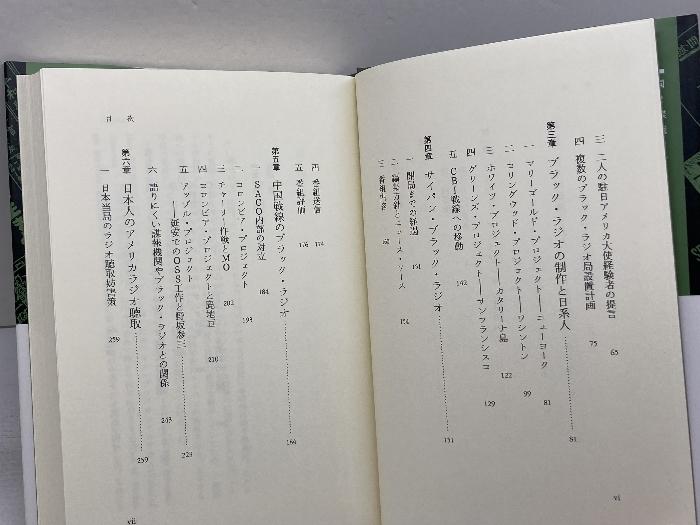 三 二人の駐日アメリカ大使経験者の提言 65
四 複数のブラック・ラジオ局設置計画 75
第三章 ブラック・ラジオの制作と日系人 81
一 マリーゴールド・プロジェクト──ニューヨーク 81
二 コリングウッド・プロジェクト──ワシントン 99
三 ホワイツ・プロジェクト──カタリーナ島 122
四 グリーンズ・プロジェクト──サンフランシスコ 129
五 CBI戦線への移動 142
第四章 サイパン・ブラック・ラジオ 151
一 開局までの経過 151
二 編集方針とニュース・ソース 154
三 番組内容
vi
目次
四 番組送信 174
五 番組評価 176
第五章 中国戦線のブラック・ラジオ 184
一 SACO内部の対立 184
二 コロンビア・プロジェクト 193
三 チャーリー作戦とMO 202
四 コロンビア・プロジェクトと奥地工 210
五 アップル・プロジェクト
──延安でのOSS工作と野坂参三 223
六 語りにくい諜報機関やブラック・ラジオとの関係 243
第六章 日本人のアメリカラジオ聴取 259
一 日本当局のラジオ聴取妨害策 259
vii